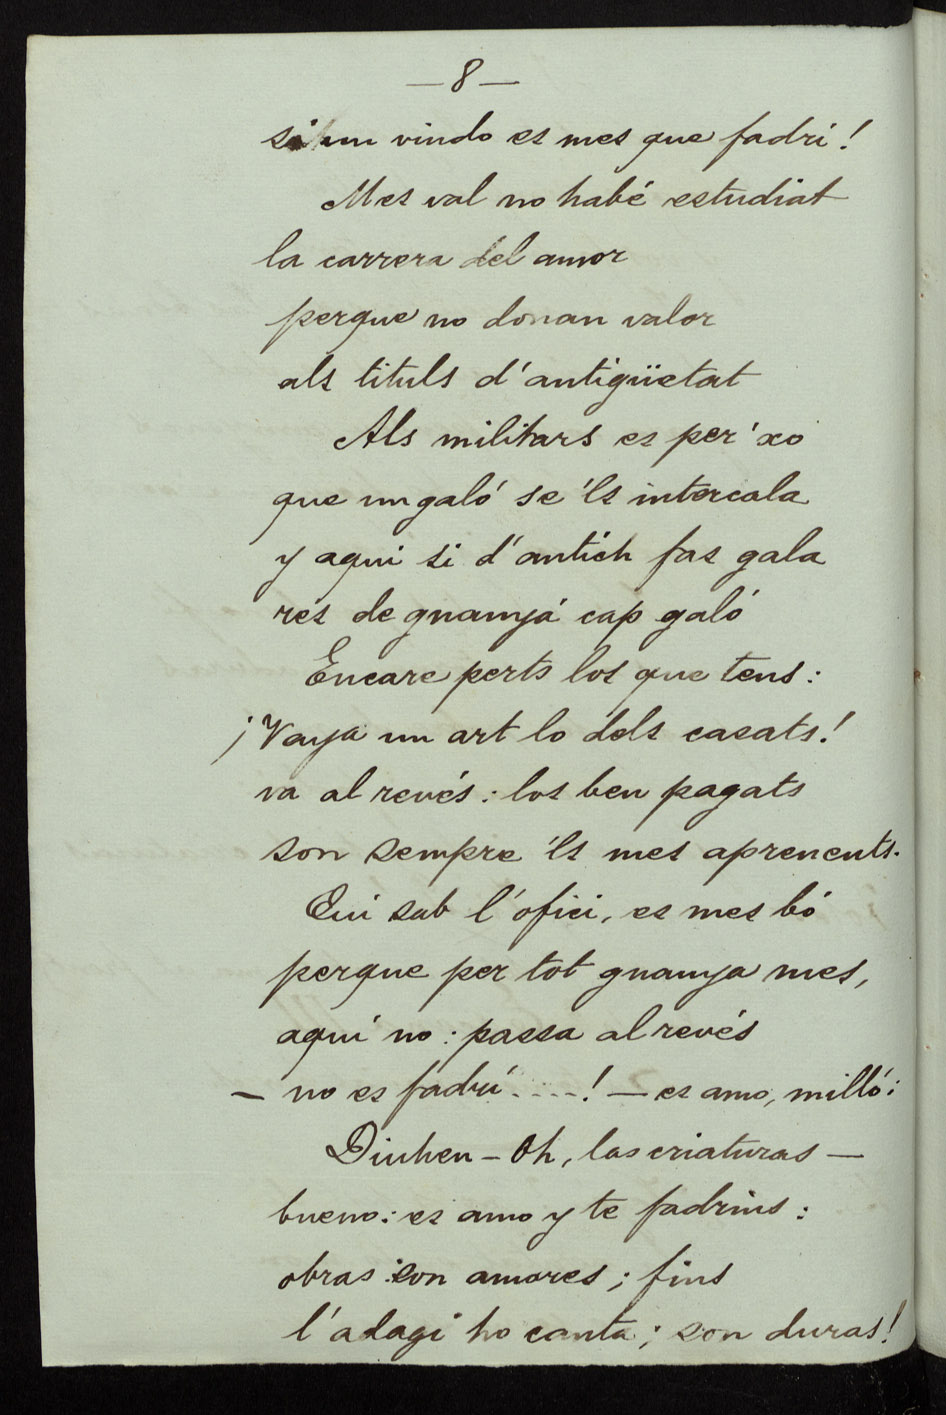 — 8 —
si un viudo es mes que fadrí!
Mes val no habé estudiat
la carrera del amor
perque no donan valor
als tituls d'antigüetat
Als militars es per 'xo
que un galó se 'ls intercala
y aqui si d'antich fas gala
res de gnanyá cap galó
Encare perts los que tens:
¡Vaya un art lo dels casats!
va al revés: los ben pagats
son sempre 'ls mes aprenents.
Qui sab l'ofici, es mes bó
perque per tot gnanya mes,
aquí no: passa al revés
— no es fadrí ....! — es amo, milló:
Diuhen — Oh, las criaturas —
bueno: es amo y te fadrins:
obras son amores; fins
l'adagi ho canta; son duras!